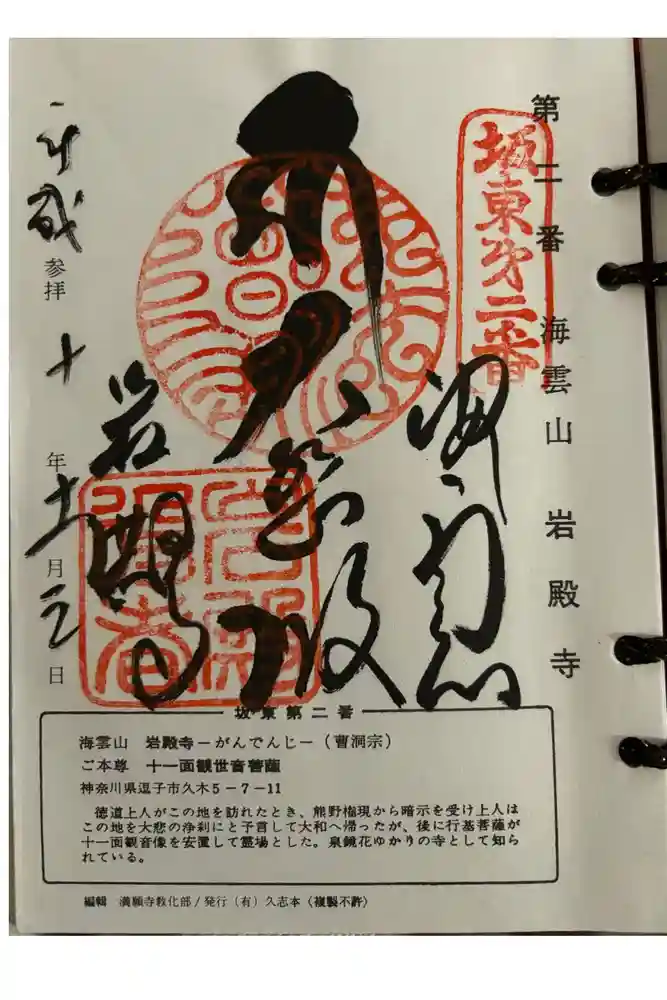 第二番 海雲山 岩殿寺
坂東第二番
大悲殿
平成 十 年 十一 月 三 日
参拝
坂東第二番
海雲山 岩殿寺－がんでんじ－（曹洞宗）
ご本尊 十一面観世音菩薩
神奈川県逗子市久木5－7－11
徳道上人がこの地を訪れたとき、熊野権現から暗示を受け上人は
この地を大悲の浄刹にと予言して大和へ帰ったが、後に行基菩薩が
十一面観音像を安置して霊場とした。泉鏡花ゆかりの寺として知ら
れている。
編輯 満願寺教化部／発行（有）久志本〈複製不許〉